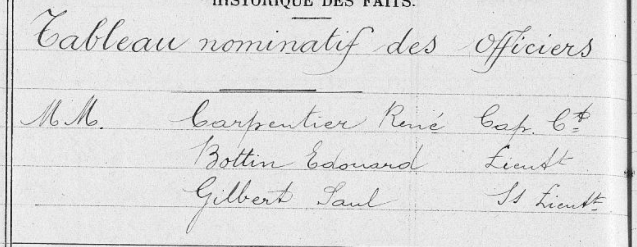 HISTORIQUE DES FAITS.
Tableau nominatif des Officiers
MM. Carpentier René Cap. Ct
Bottin Edouard Lieutt
Gilbert Paul Ss Lieutt